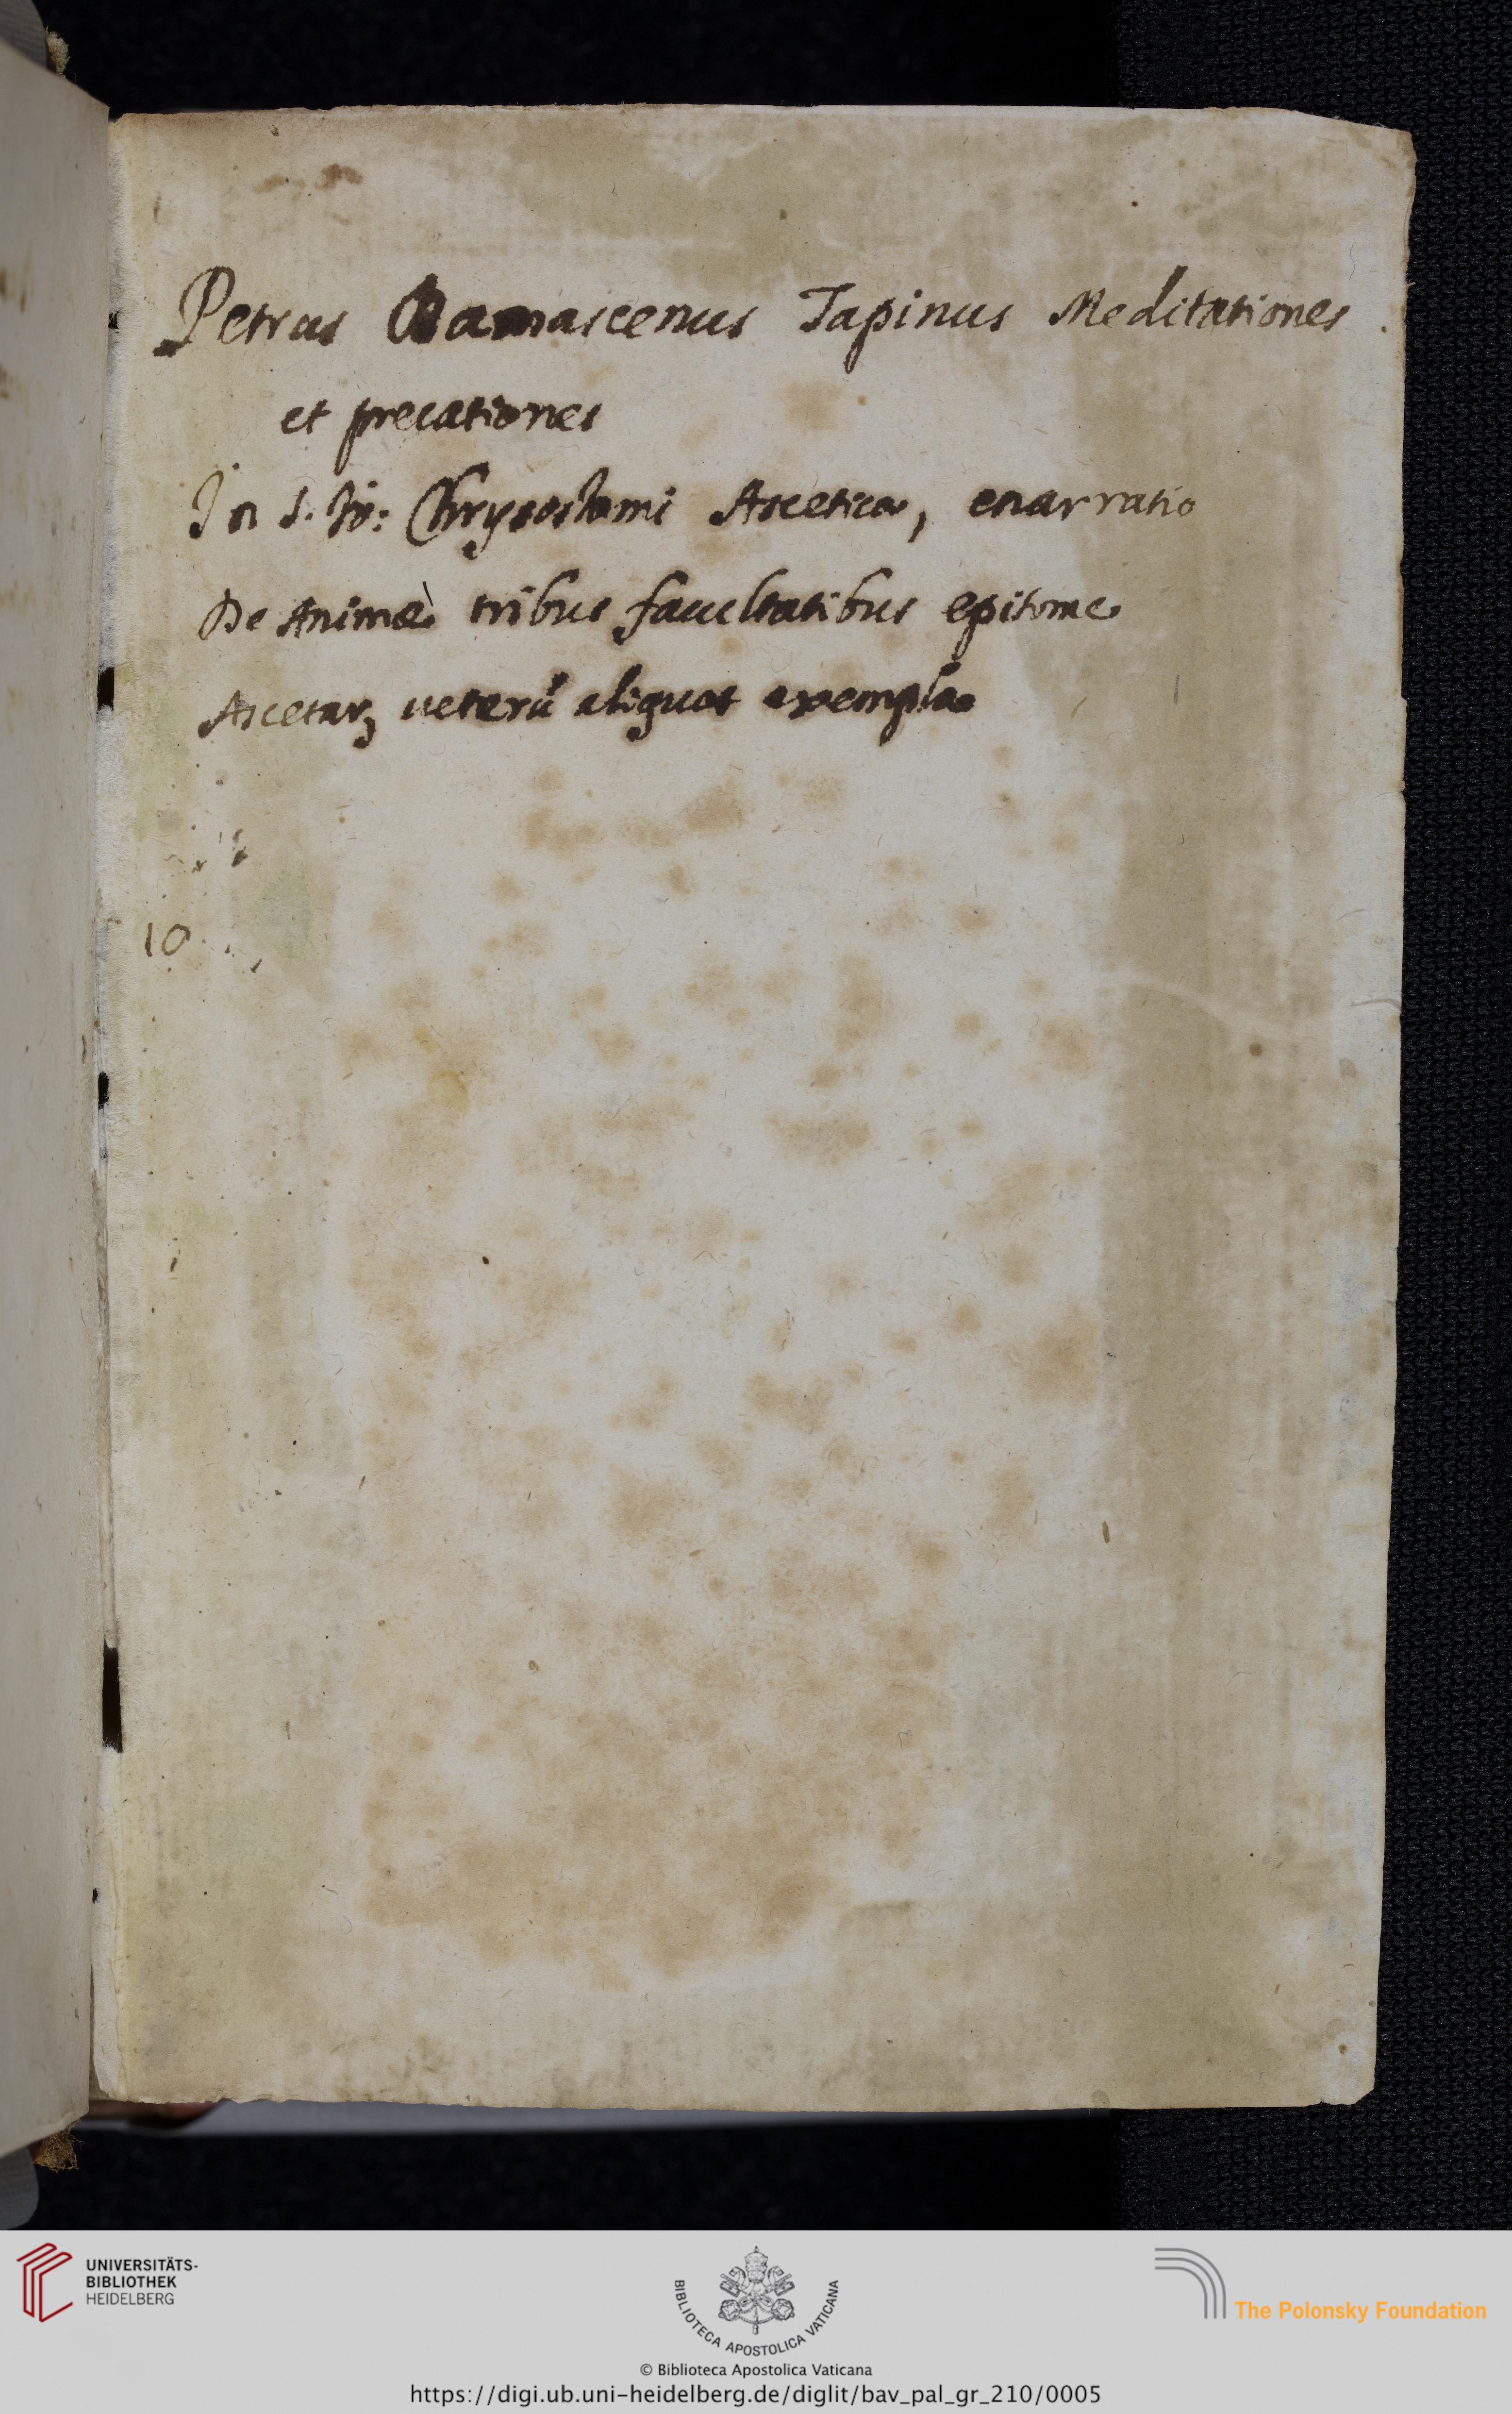 Petrus Damascenus Tapinus Meditationes
et precationes
In S. Jo: Chrysostomi Ascetica, enarratio
De Animæ tribus facultatibus epitome
Ascetarꝫ ueterũ aliquot exempla
10
UNIVERSITÄTS-
BIBLIOTHEK
HEIDELBERG
BIBLIOTECA APOSTOLICA VATICANA
The Polonsky Foundation
© Biblioteca Apostolica Vaticana
https://digi.ub.uni-heidelberg.de/diglit/bav_pal_gr_210/0005